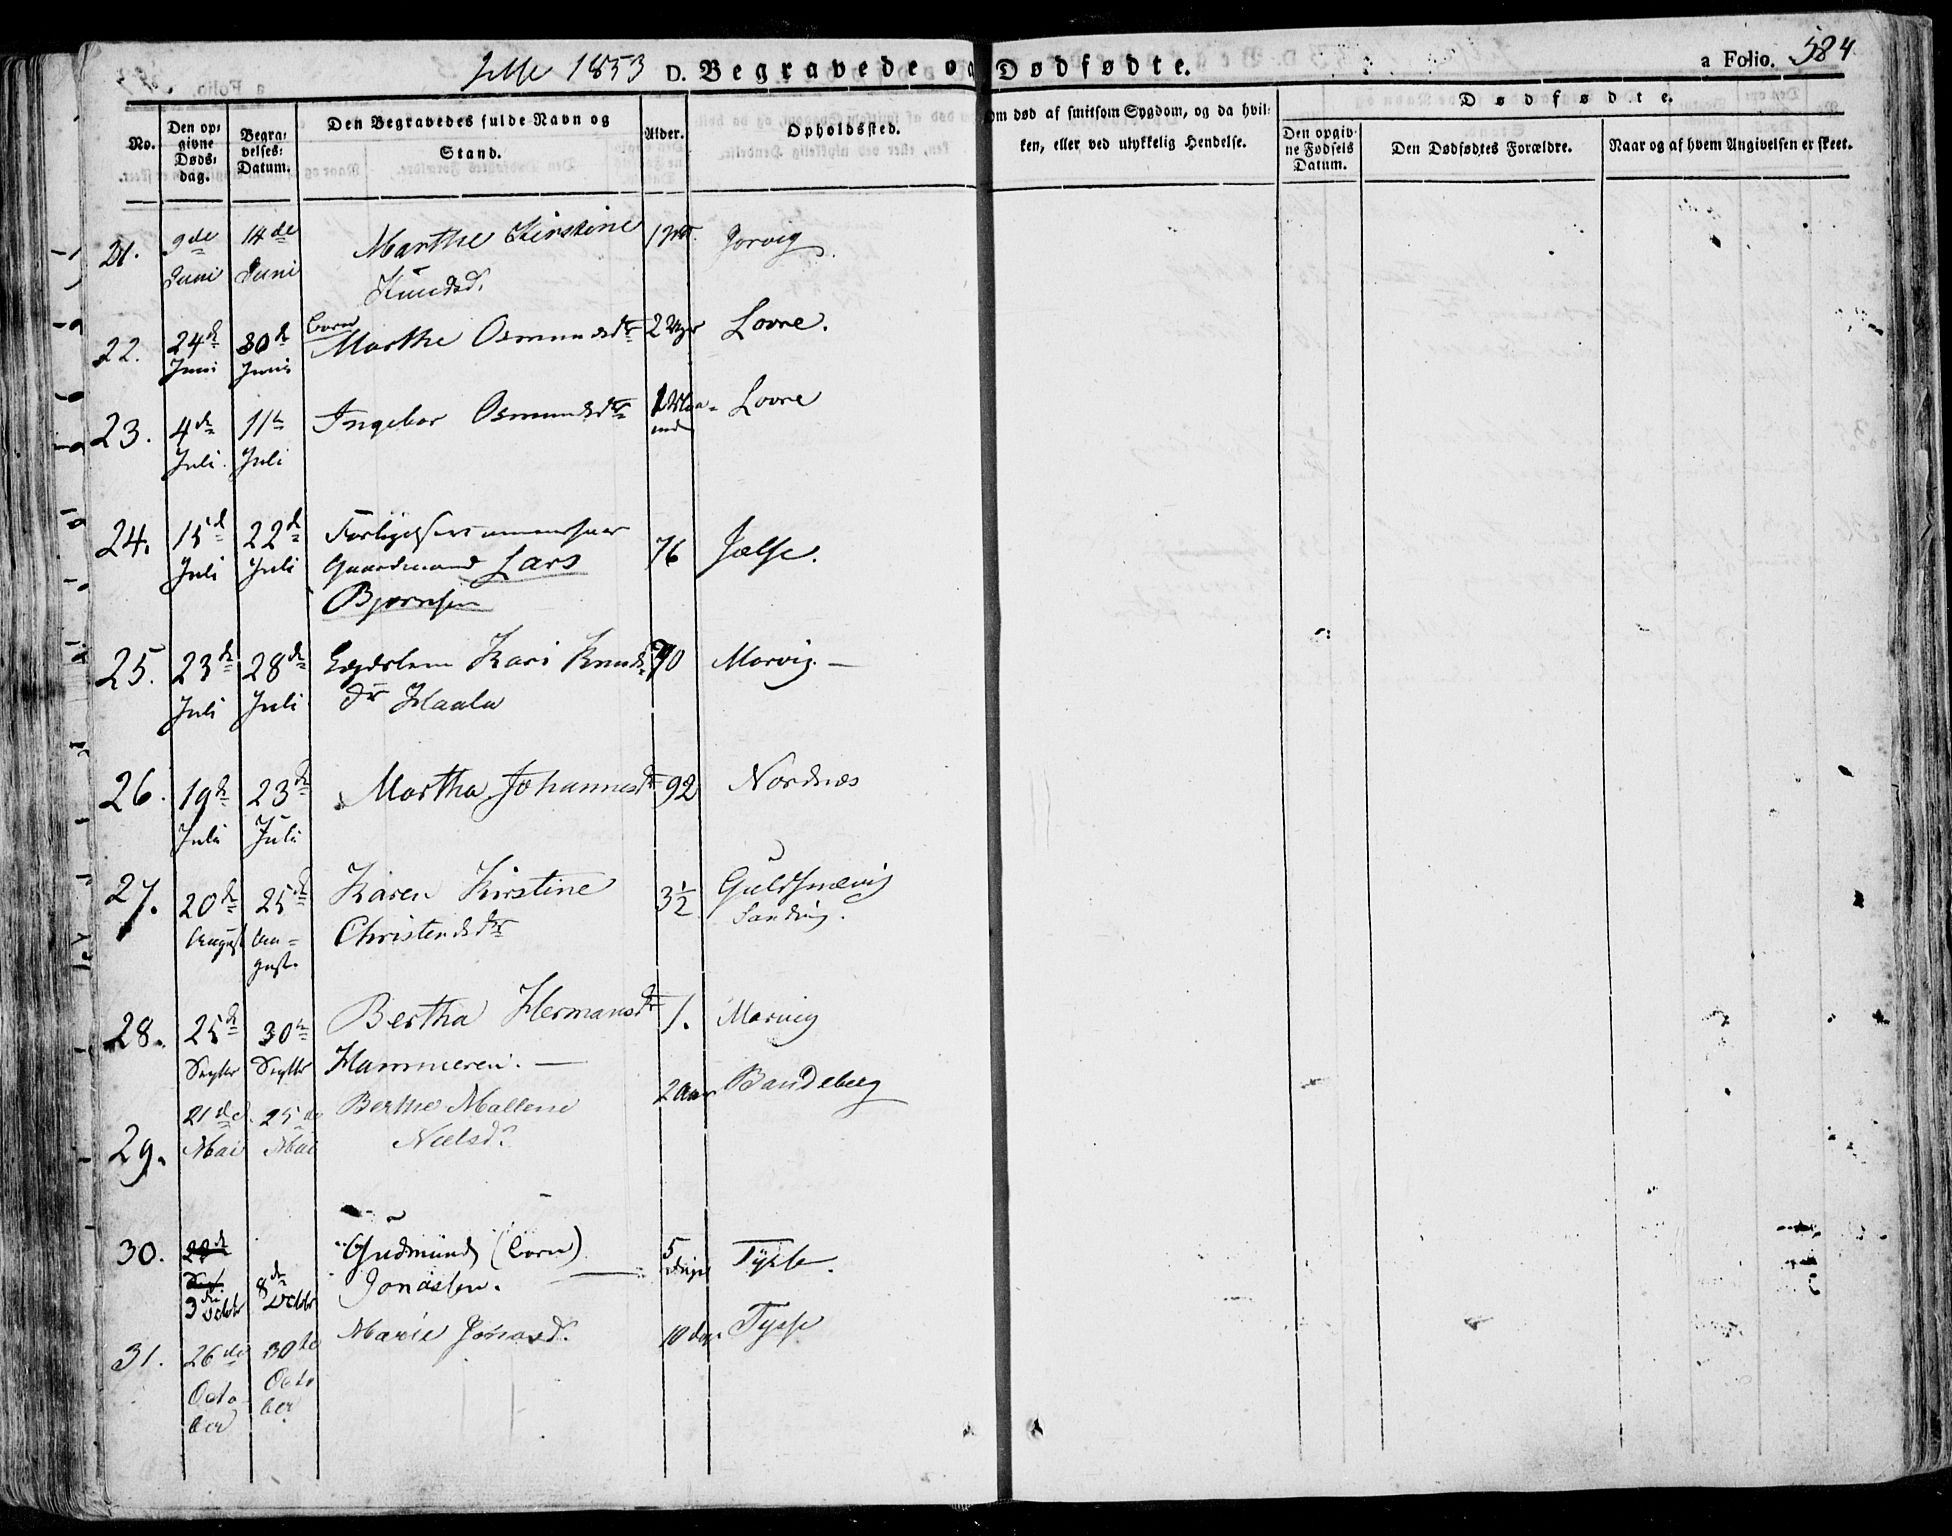 Jelse 1853 D. Begravede og Dødfødte. a Folio. 584
No.
Den opgivne Døds-dag.
Begravelses-Datum.
Den Begravedes fulde Navn og Stand.
Alder.
Opholdssted.
Om død af smitsom Sygdom, og da hvilken, eller ved ulykkelig Hendelse.
Dødfødte.
Den opgivne Fødsels Datum.
Den Dødfødtes Forældre.
Naar og af hvem Angivelsen er skeet.
21. 9de Juni 14de Juni Marthe Kirstine
Knudsd.
22. 24de Juni 30de Juni Barn Marthe Osmundsdr 2 Uger Lovre.
23. 4de Juli 11te Juli Ingebor Osmundsdr Maaned Lovre
24. 15de Juli 22de Juli Forligelsescommissair
Gaardmand Lars
Bjørnsen 76 Jælse.
25. 23de Juli 28de Juli Lægdslem Kari Knuds
dr Haala 70 Marvig. —
26. 19de Juli 23de Juli Martha Johannesdr 92 Nordnæs
27. 20de August 25de August Karen Kirstine
Christensdr 3½ Guldsmævig
Sandvig.
28. 25de Septbr 30te Septbr Bertha Hermansdr
Hammeren. — 1. Marvig
29. 21de Mai 25de Mai Berthe Mallene
Nielsd. 2 Aar Bandeberg
30. 3die Octobr 8de Octobr Gudmund (Barn)
Jonassen. 5 Dage Tysse.
31. 26de October 30te October Marie Jonasd. 10 dage Tysse